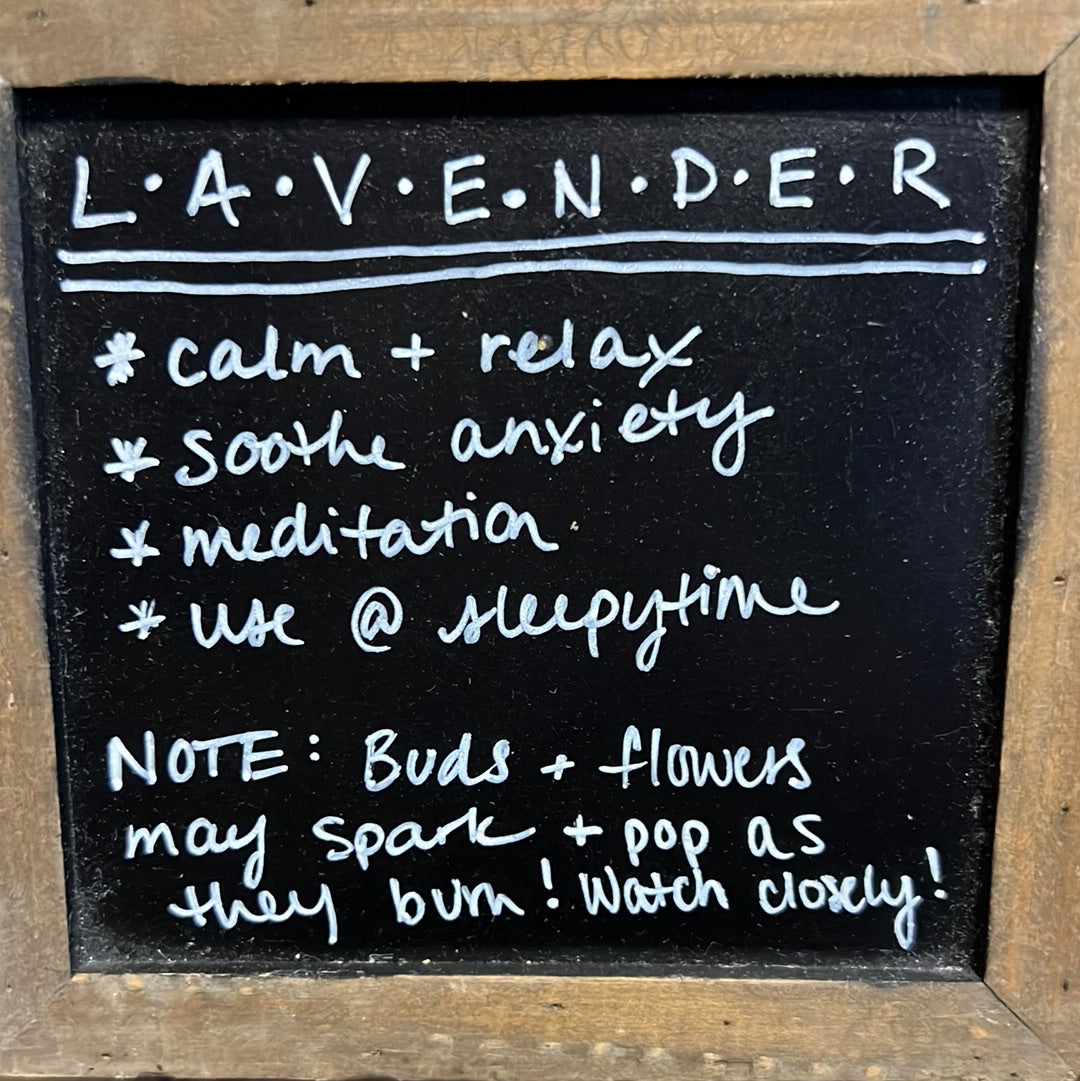 L·A·V·E·N·D·E·R
* calm + relax
* soothe anxiety
* meditation
* use @ sleepytime
NOTE: Buds + flowers
may spark + pop as
they burn! Watch closely!